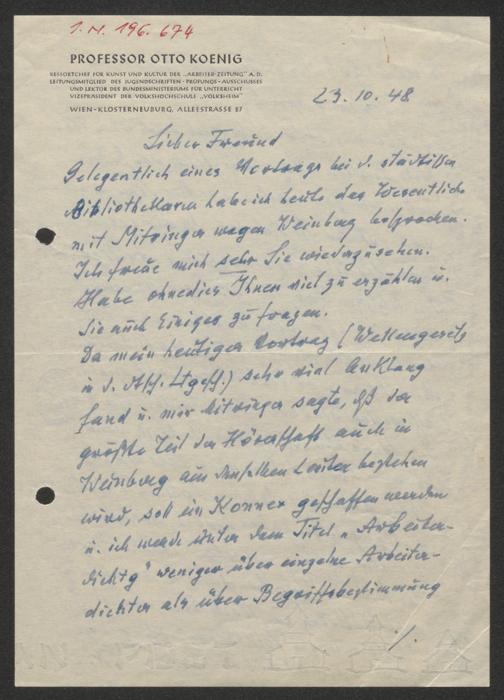 I. N. 196.674
PROFESSOR OTTO KOENIG
RESSORTCHEF FÜR KUNST UND KULTUR DER „ARBEITER-ZEITUNG" A. D.
LEITUNGSMITGLIED DES JUGENDSCHRIFTEN-PRÜFUNGS-AUSSCHUSSES
UND LEKTOR DES BUNDESMINISTERIUMS FÜR UNTERRICHT
VIZEPRÄSIDENT DER VOLKSHOCHSCHULE „VOLKSHEIM"
WIEN-KLOSTERNEUBURG, ALLEESTRASSE 27
23.10.48
Lieber Freund
Gelegentlich eines Vortrags bei d. städtischen
Bibliothekaren habe ich heute das Wesentliche
mit Mitringer wegen Weinberg besprochen.
Ich freue mich sehr Sie wiederzusehen.
Habe ohnedies Ihnen viel zu erzählen u.
Sie auch Einiges zu fragen.
Da mein heutiger Vortrag (Wellengesetz
in d.) sehr viel Anklang
fand u. mir Mitringer sagte, dß der
größte Teil der Hörerschaft auch in
Weinberg aus denselben Leuten bestehen
wird, soll ein Konnex geschaffen werden
u. ich werde unter dem Titel „Arbeiter-
dichtg" weniger über einzelne Arbeiter-
dichter als über Begriffsbestimmung
./.